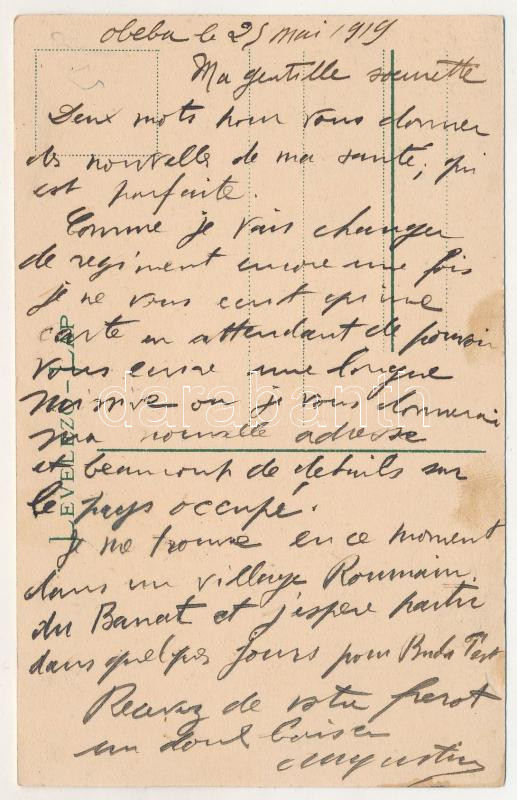 Obeba le 25 mai 1919
Ma gentille soeurette
Deux mots pour vous donner
des nouvelle de ma santé, qui
est parfaite.
Comme je vais changer
de regiment encore une fois
je ne vous ecrit qu'une
carte en attendant de pouvoir
vous ecrire une longue
missive ou je vous donnerai
ma nouvelle adresse
et beaucoup de details sur
le pays occupé.
Je me trouve en ce moment
dans un village Roumain
du Banat et j'espere partir
dans quelques jours pour Buda Pest
Recevez de votre frerot
un doux baiser
Augustin
LEVELEZŐ-LAP
darabanth